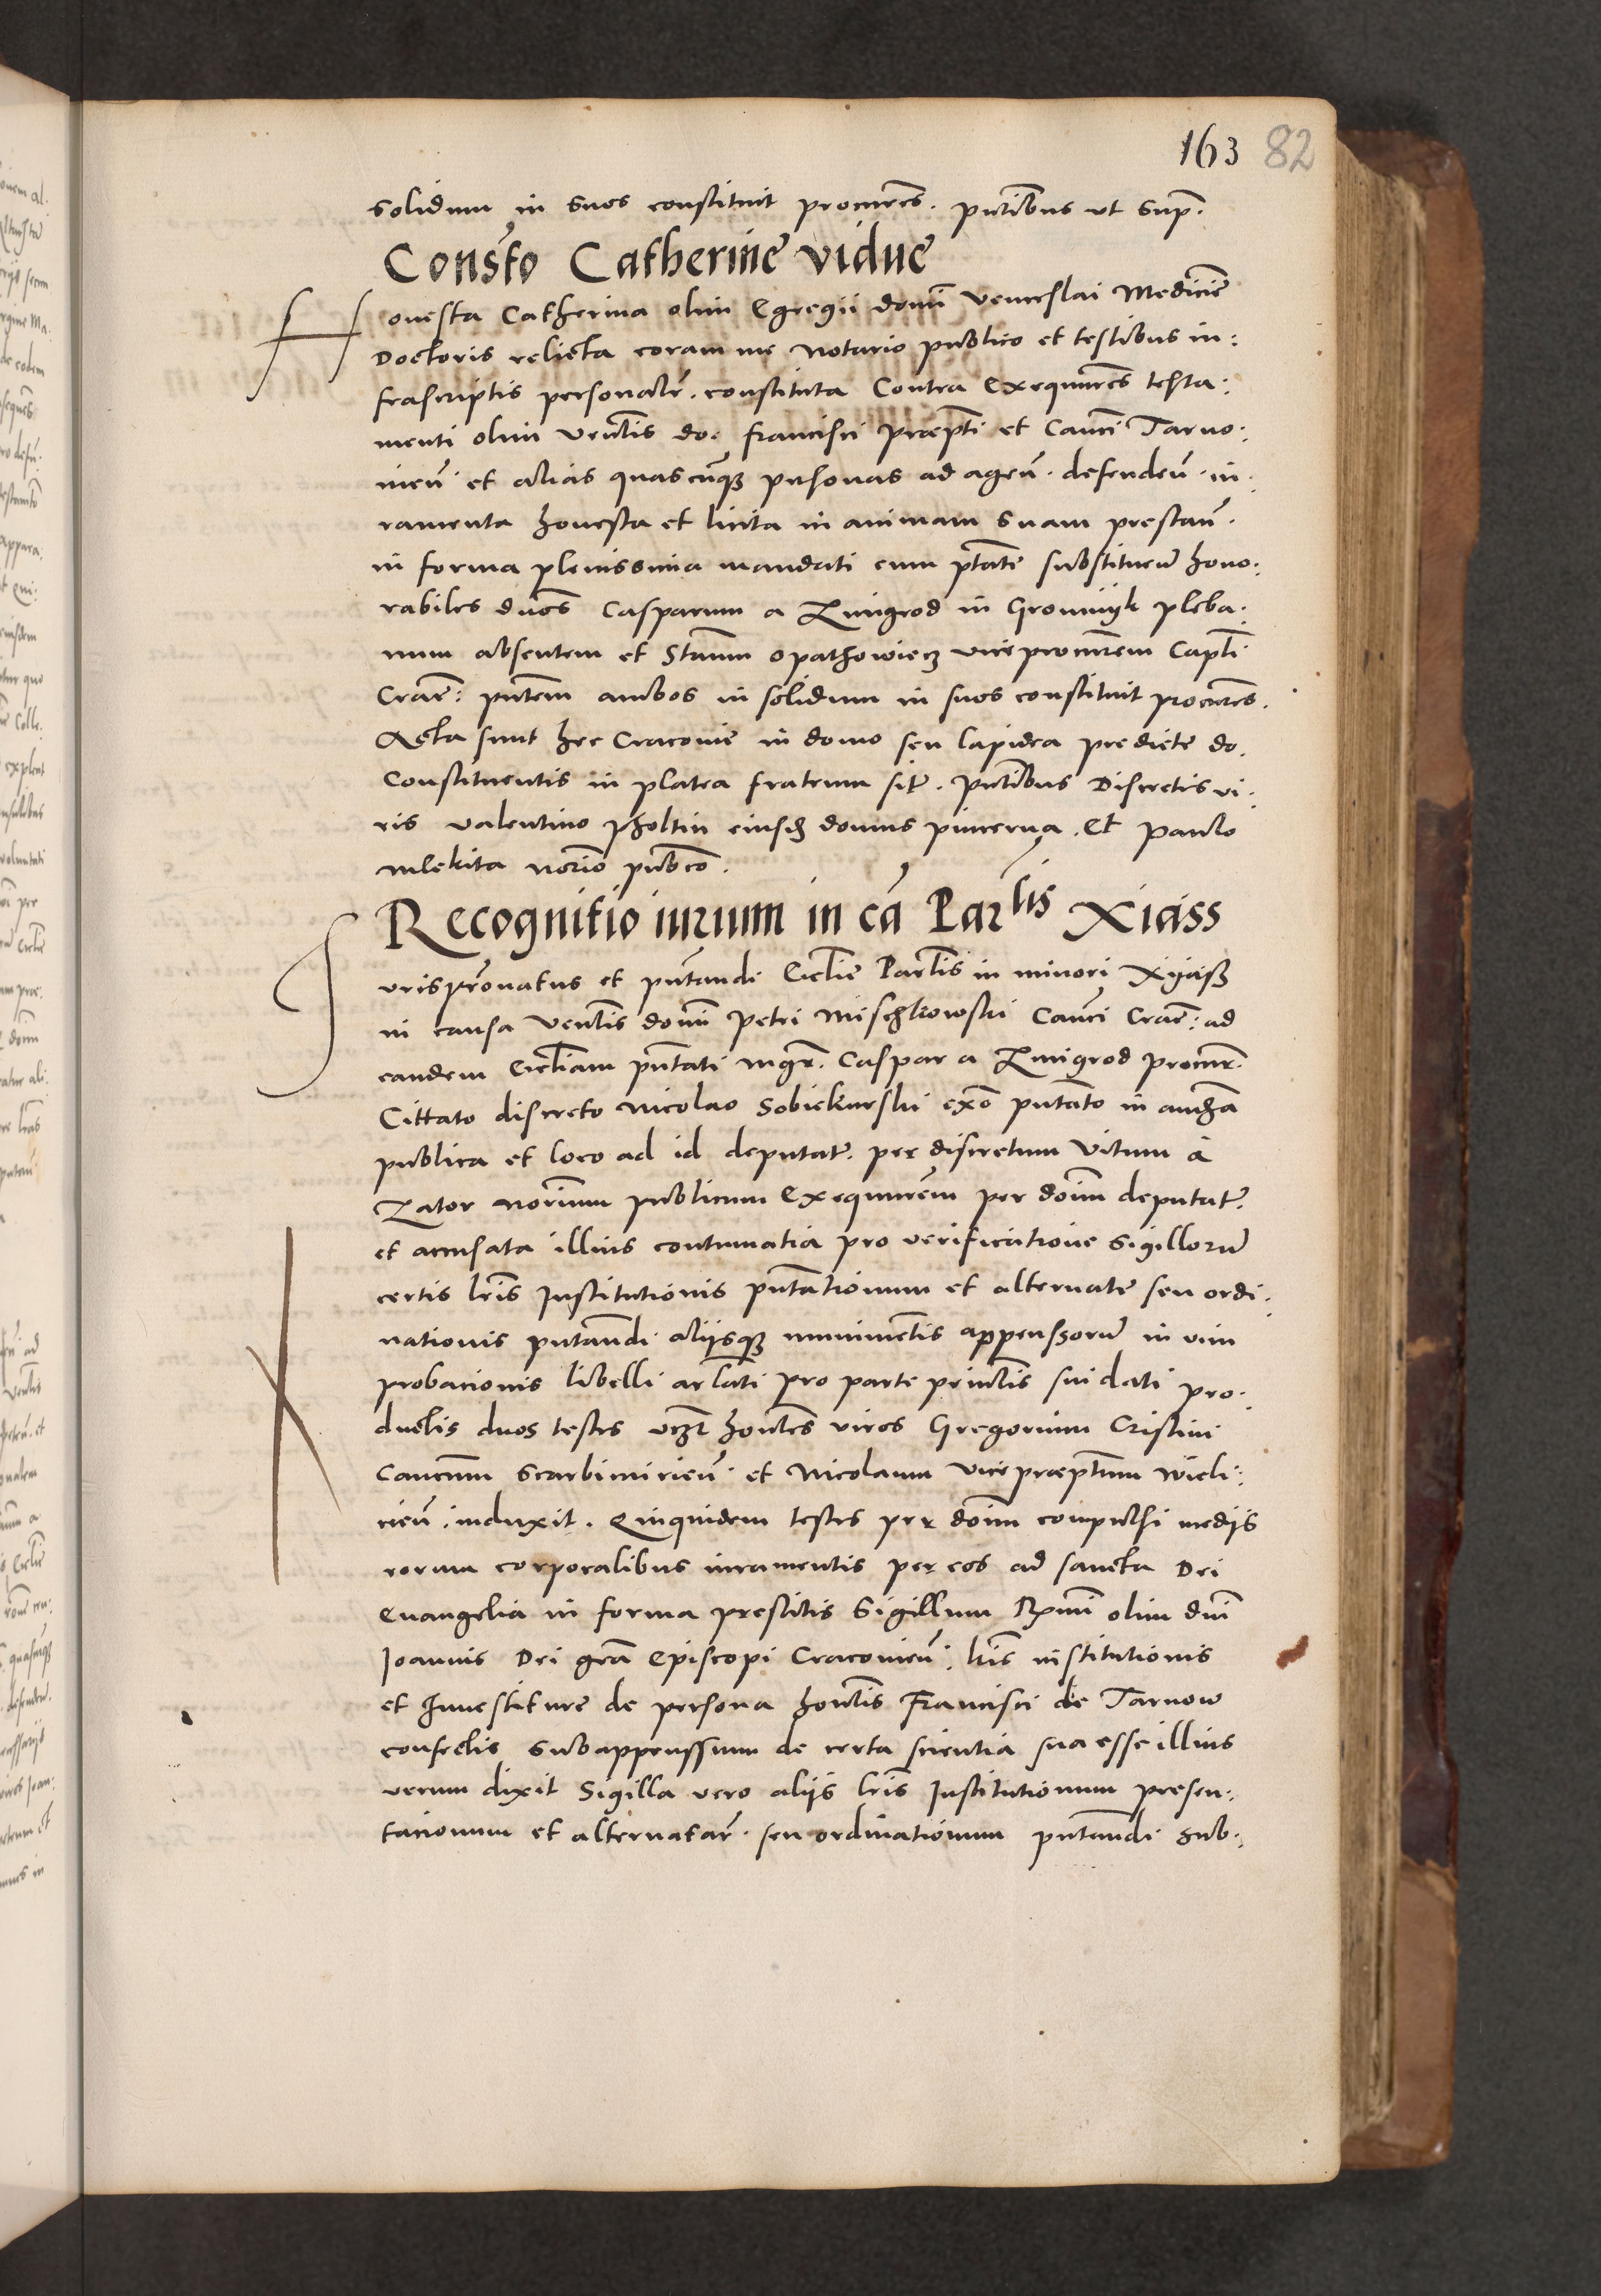 163 82
solidum in suos constituit procur̃es. pñtibus ut sup̃.
Consto Catherine vidue
Honesta Catherina olim Egregii domi Venceslai Medicine
Doctoris relicta coram me notario publico et testibus in:
frascriptis personalr̃. constituta Contra Exequutores testa:
menti olim Ven̄lis do. francisci p̃rep̃ti et Can̄ci Tarno:
uień et alias quascunq̃ personas ad ageñ. defendeñ. iu:
ramenta honesta et licita in animam suam prestañ.
in forma plenissima mandati cum p̃tate substitueñ hono:
rabiles dños Casparum a Zmigrod in Gromnyk pleba:
num absentem et Stañm opathowiecz vicep̃rocur̃em Cap̃li
Crac̃: pñtem ambos in solidum in suos constituit procur̃es.
Acta sunt hec Cracouie in domo seu lapidea predicte do.
Constituentis in platea fratrum sit̃. pñtibus Discretis vi:
ris valentino pholtin eiusd̃ domus pincerna. Et paulo
mlekita nor̃io pub̃co.
Recognitio iurium in cā Parlis Xiass
Jurispr̃onatus et pñtandi Eccl̃ie Parl̃is in minori Xyąsz
in causa Ven̄lis domi petri Mischkowski Can̄ci Crac̃: ad
eandem Eccl̃iam pñtati mgr̃. Caspar a Zmigrod procur̃.
Cittato discreto Nicolao Sobiekurski ex̃o pñtato in audiã
publica et loco ad id deputat̃. per discretum Vitum à
Zator nor̃ium publicum Exequutorem per doim̃ deputat̃.
et accusata illius contumatia pro verificatione sigillorũ
certis lr̃is Institutionis pñtationum et alternate seu ordi:
nationis pñtandi. aliisq̃ munimentis appenssorũ in vim
probacionis libelli arl̃ati pro parte prin̄lis sui dati pro:
ductis duos testes vcz̃ hon̄les viros Gregorium Cristini
Canc̃um Scarbimirieñ. et Nicolaum vicep̃rep̃tum wieli:
cieñ. induxit. Quiquidem testes per doim̃ compulsi mediis
eorum corporalibus iuramentis per eos ad sancta Dei
Euangelia in forma prestitis Sigillum R̃mi olim dñi
Joannis Dei gr̃a Episcopi Cracouieñ. lr̃is institutionis
et Inuestiture de persona hon̄lis Francisci de Tarnow
confectis subappenssum de certa scientia sua esse illius
verum dixit Sigilla vero aliis lr̃is Institutionum presen:
tacionum et alternatar̃. seu ordinationum pñtandi sub: